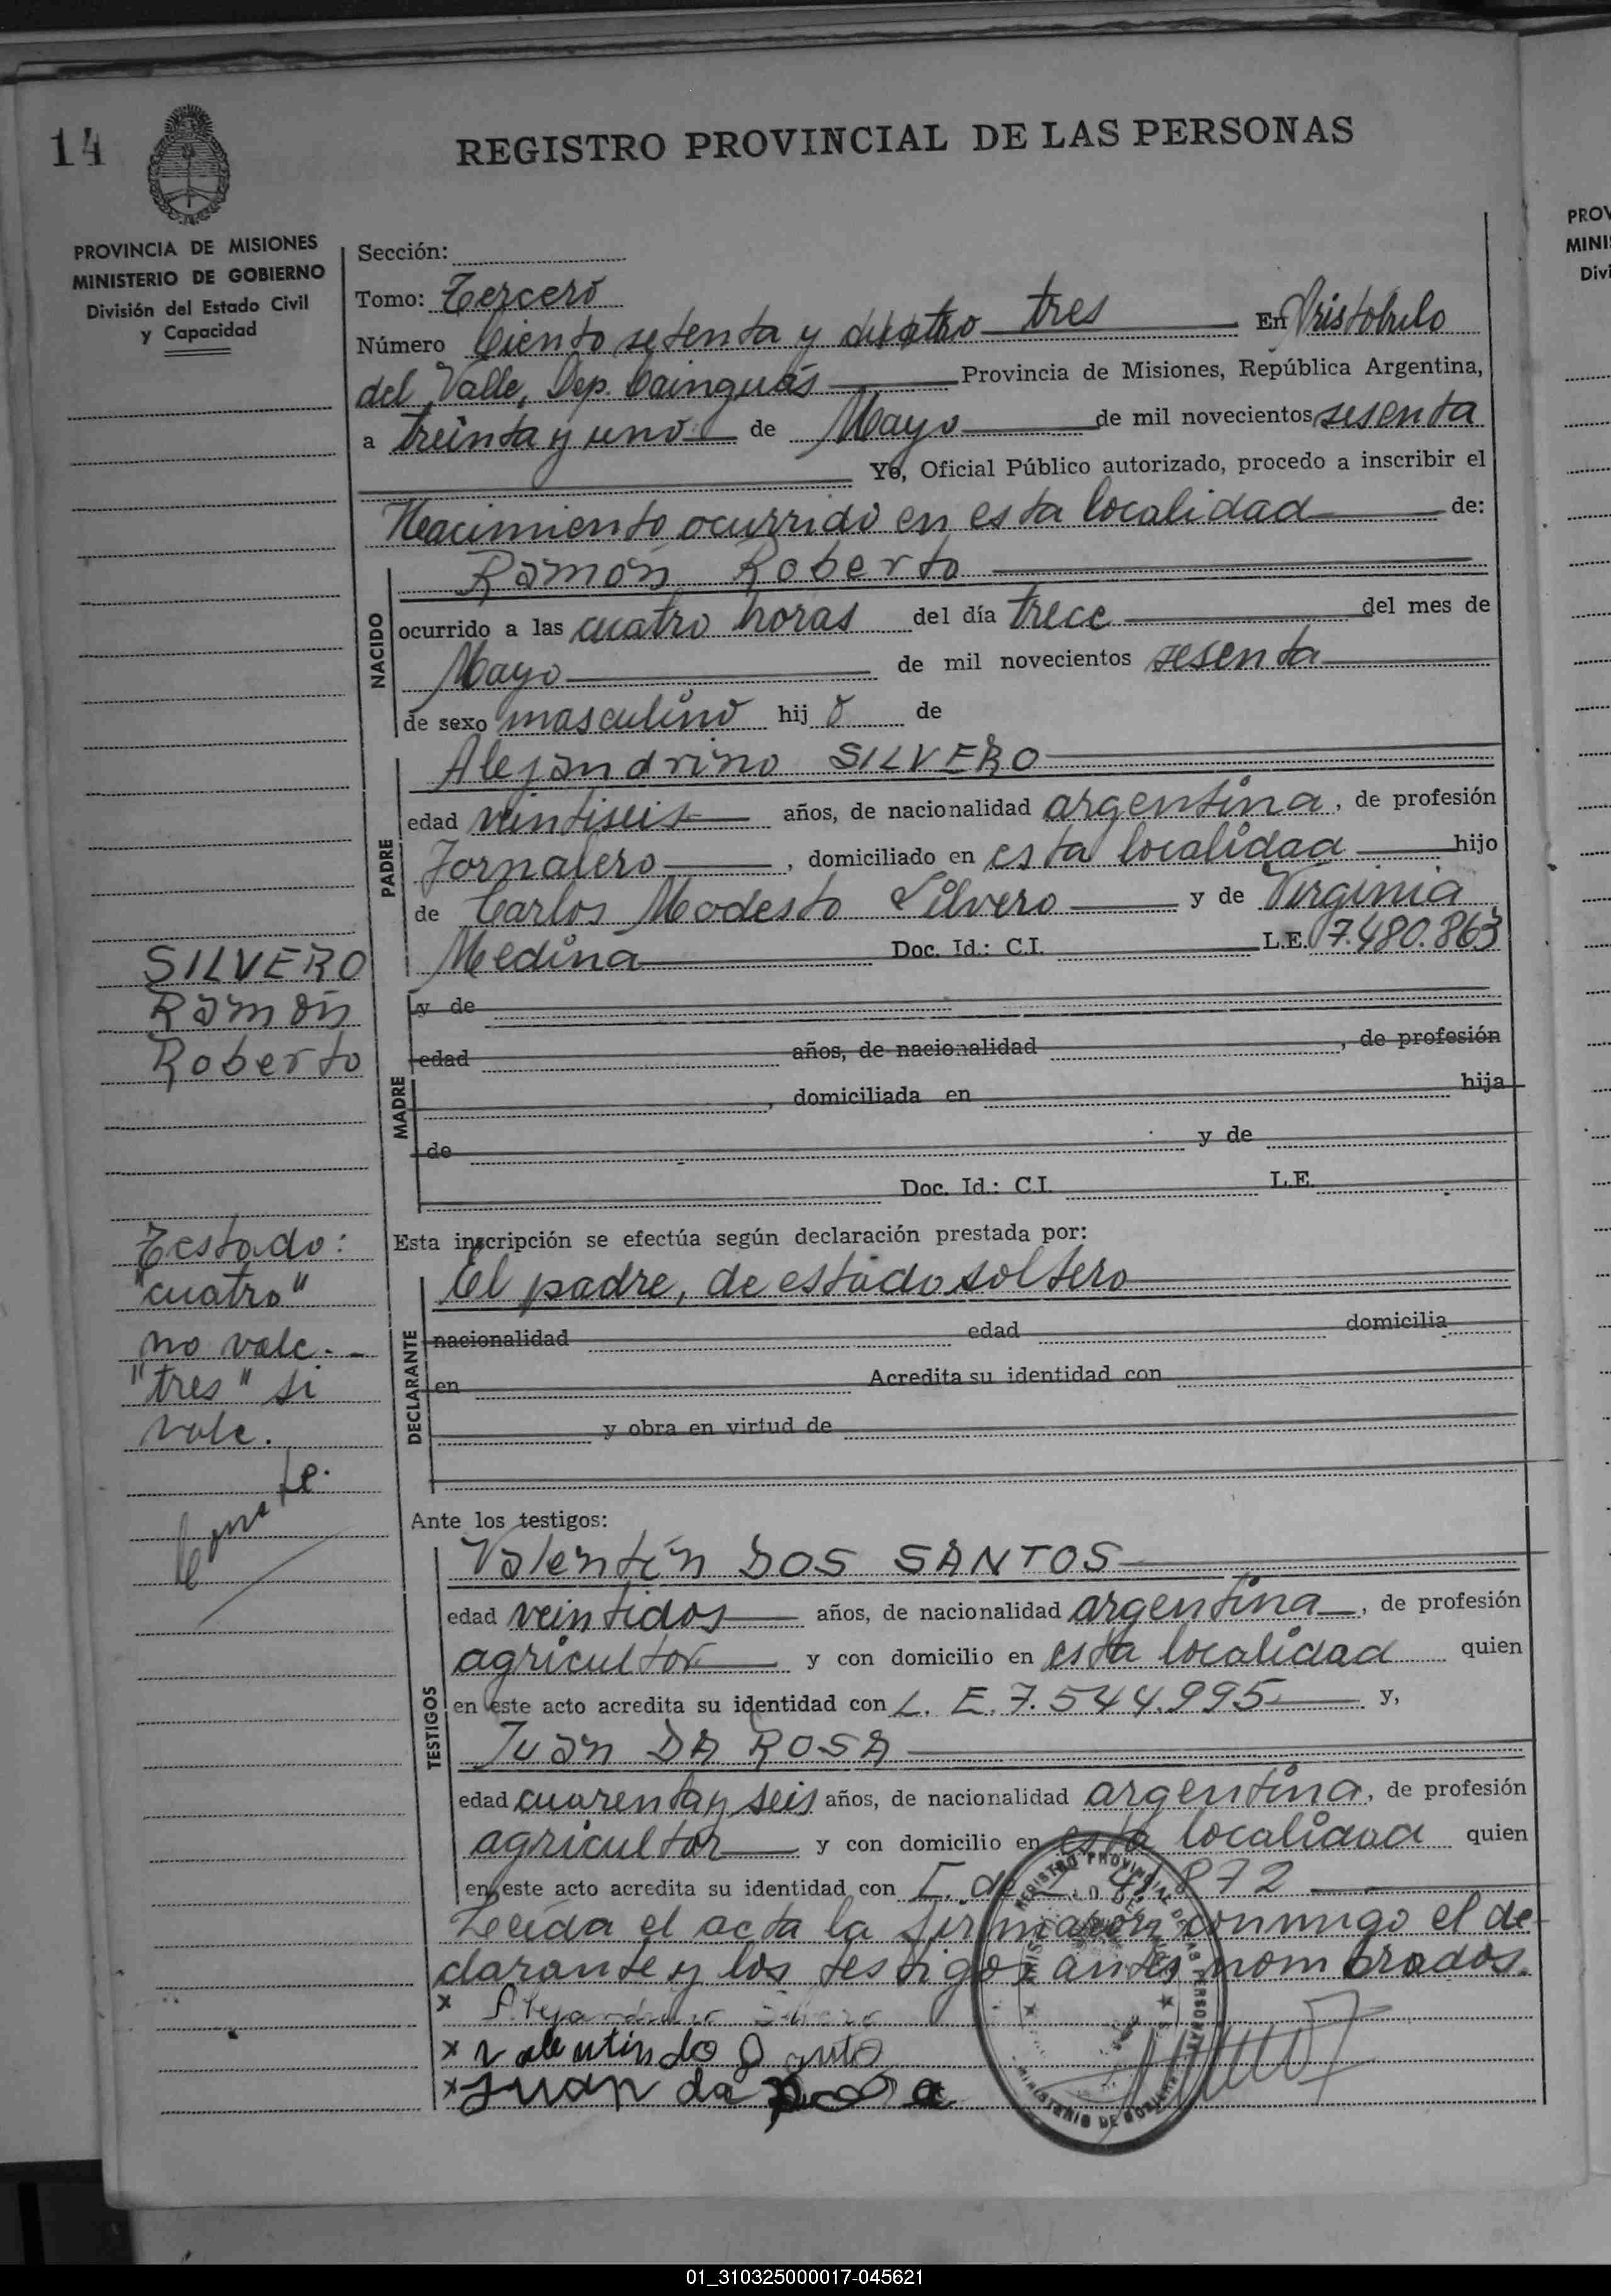 14
REGISTRO PROVINCIAL DE LAS PERSONAS
PROVINCIA DE MISIONES
MINISTERIO DE GOBIERNO
División del Estado Civil
y Capacidad
Sección:
Tomo: Tercero
Número Ciento setenta y cuatro tres En Aristobulo
del Valle, Dep. Cainguás Provincia de Misiones, República Argentina,
a treinta y uno de Mayo de mil novecientos sesenta
Yo, Oficial Público autorizado, procedo a inscribir el
Nacimiento ocurrido en esta localidad de:
NACIDO
Ramón Roberto
ocurrido a las cuatro horas del día trece del mes de
Mayo de mil novecientos sesenta
de sexo masculino hij o de
PADRE
Alejandrino SILVERO
edad veintiseis años, de nacionalidad argentina, de profesión
Jornalero, domiciliado en esta localidad hijo
de Carlos Modesto Silvero y de Virginia
Medina Doc. Id.: C.I. L.E. 7.480.863
SILVERO
Ramón
Roberto
MADRE
y de
edad años, de nacionalidad , de profesión
, domiciliada en hija
de y de
Doc. Id.: C.I. L.E.
Esta inscripción se efectúa según declaración prestada por:
DECLARANTE
El padre, de estado soltero
nacionalidad edad domicilia
en Acredita su identidad con
y obra en virtud de
Testado:
"cuatro"
no vale.-
"tres" si
vale.
Ante los testigos:
TESTIGOS
Valentín DOS SANTOS
edad veintidos años, de nacionalidad argentina, de profesión
agricultor y con domicilio en esta localidad quien
en este acto acredita su identidad con L. E. 7.544.995 y,
Juan DA ROSA
edad cuarenta y seis años, de nacionalidad argentina, de profesión
agricultor y con domicilio en esta localidad quien
en este acto acredita su identidad con 872
Leida el acta la firmaron conmigo el de-
clarante y los testigos antes nombrados.
x Alejandrino Silvero
x valentin do
x Juan da Rosa
REGISTRO PROVINCIAL DE LAS PERSONAS
MINISTERIO DE GOBIERNO
PROV
MINI
Divi
01_310325000017-045621